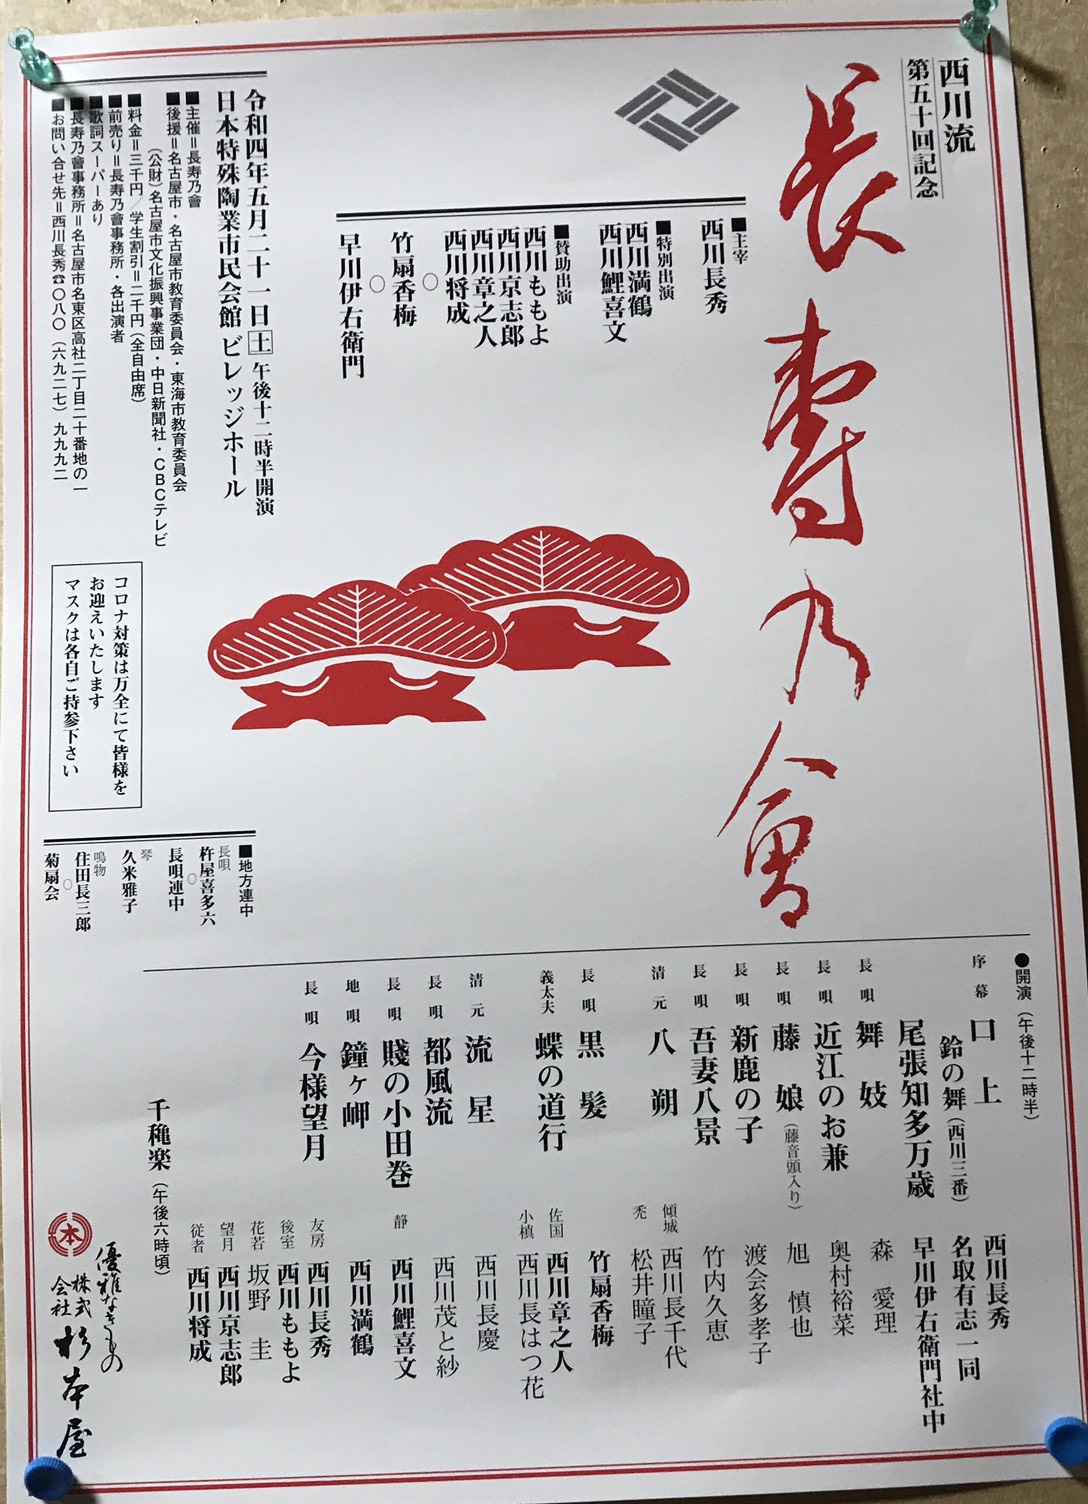 西川流
第五十回記念
長壽乃會
■主宰
西川長秀
■特別出演
西川満鶴
西川鯉喜文
■賛助出演
西川ももよ
西川京志郎
西川章之人
西川将成
○
竹扇香梅
○
早川伊右衛門
令和四年五月二十一日土午後十二時半開演
日本特殊陶業市民会館 ビレッジホール
■主催＝長寿乃會
■後援＝名古屋市・名古屋市教育委員会・東海市教育委員会
(公財)名古屋市文化振興事業団・中日新聞社・CBCテレビ
■料金＝三千円／学生割引＝二千円(全自由席)
■前売り＝長寿乃會事務所・各出演者
■歌詞スーパーあり
■長寿乃會事務所＝名古屋市名東区高社二丁目二十番地の一
■お問い合せ先＝西川長秀☎〇八〇(六九二七)九九九二
コロナ対策は万全にて皆様を
お迎えいたします
マスクは各自ご持参下さい
■地方連中
長唄
杵屋喜多六
○
長唄連中
琴
久米雅子
鳴物
住田長三郎
○
菊扇会
●開演(午後十二時半)
序幕 口上 西川長秀
鈴の舞(西川三番) 名取有志一同
尾張知多万歳 早川伊右衛門社中
長唄 舞妓 森 愛理
長唄 近江のお兼 奥村裕菜
長唄 藤娘(藤音頭入り) 旭 慎也
長唄 新鹿の子 渡会多孝子
長唄 吾妻八景 竹内久恵
清元 八朔 傾城 西川長千代
禿 松井瞳子
長唄 黒髪 竹扇香梅
義太夫 蝶の道行 佐国 西川章之人
小槙 西川長はつ花
清元 流星 西川長慶
長唄 都風流 西川茂と紗
長唄 賤の小田巻 静 西川鯉喜文
地唄 鐘ヶ岬 西川満鶴
長唄 今様望月 友房 西川長秀
後室 西川ももよ
花若 坂野 圭
望月 西川京志郎
従者 西川将成
千穐楽(午後六時頃)
本
優雅なきもの
株式会社 杉本屋